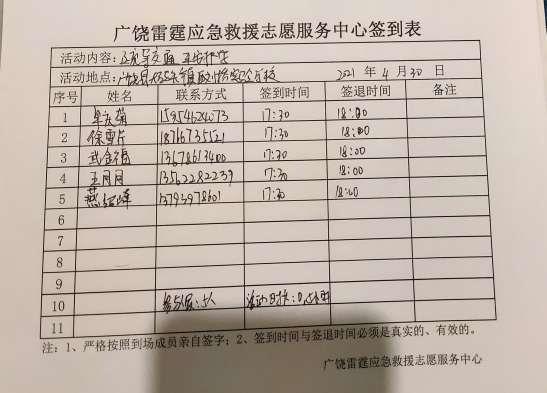 广饶雷霆应急救援志愿服务中心签到表
活动内容:
活动地点: 2021 年 4 月 30 日
序号 姓名 联系方式 签到时间 签退时间 备注
1 15954624073 17:30 18:00
2 徐雪芹 18716735521 17:30 18:00
3 武金福 13678613400 17:30 18:00
4 王月月 13562282239 17:30 18:00
5 13793978601 17:30 18:00
6
7
8
9
10 参与人员:5人 活动时长:0.5小时
11
注:1、严格按照到场成员亲自签字;2、签到时间与签退时间必须是真实的、有效的。
广饶雷霆应急救援志愿服务中心